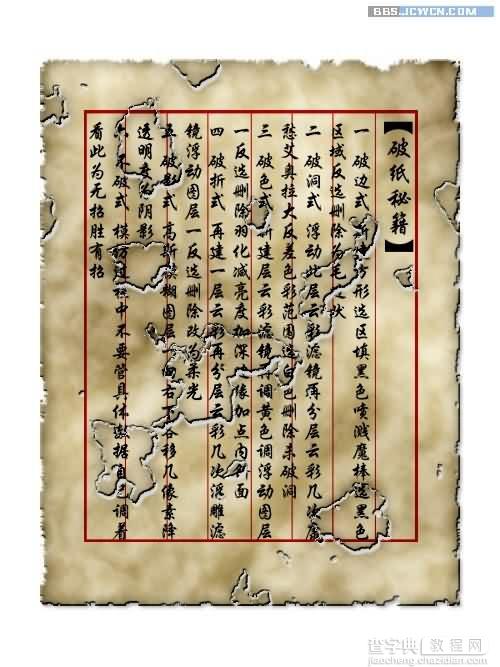 BBS.JCWCN.COM
【破纸秘籍】
一 破边式 新建 方形选区填黑色喷溅魔棒选黑色
区域反选删除为毛 状
二 破洞式 浮动此层云彩滤镜再分层云彩几次
愁艾奥拉大反差色彩范围选白色删除杀破洞
三 破色式 新建层云彩滤镜再调黄色调浮动图层
一反选删除羽化减亮度加深 像加点内斜面
四 破折式 再建一层云彩再分层云彩几次浮雕滤
镜浮动图层一反选删除改为柔光
五 破影式 高斯模糊图层一向右下各移几像素降
透明度为阴影
六 不破式 模仿过程中不要管具体数据自己调着
看此为无招胜有招
查字典 教程网
jiaocheng.chazidian.com